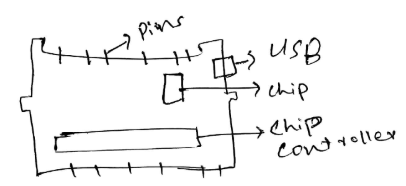 pins
USB
chip
chip
controller